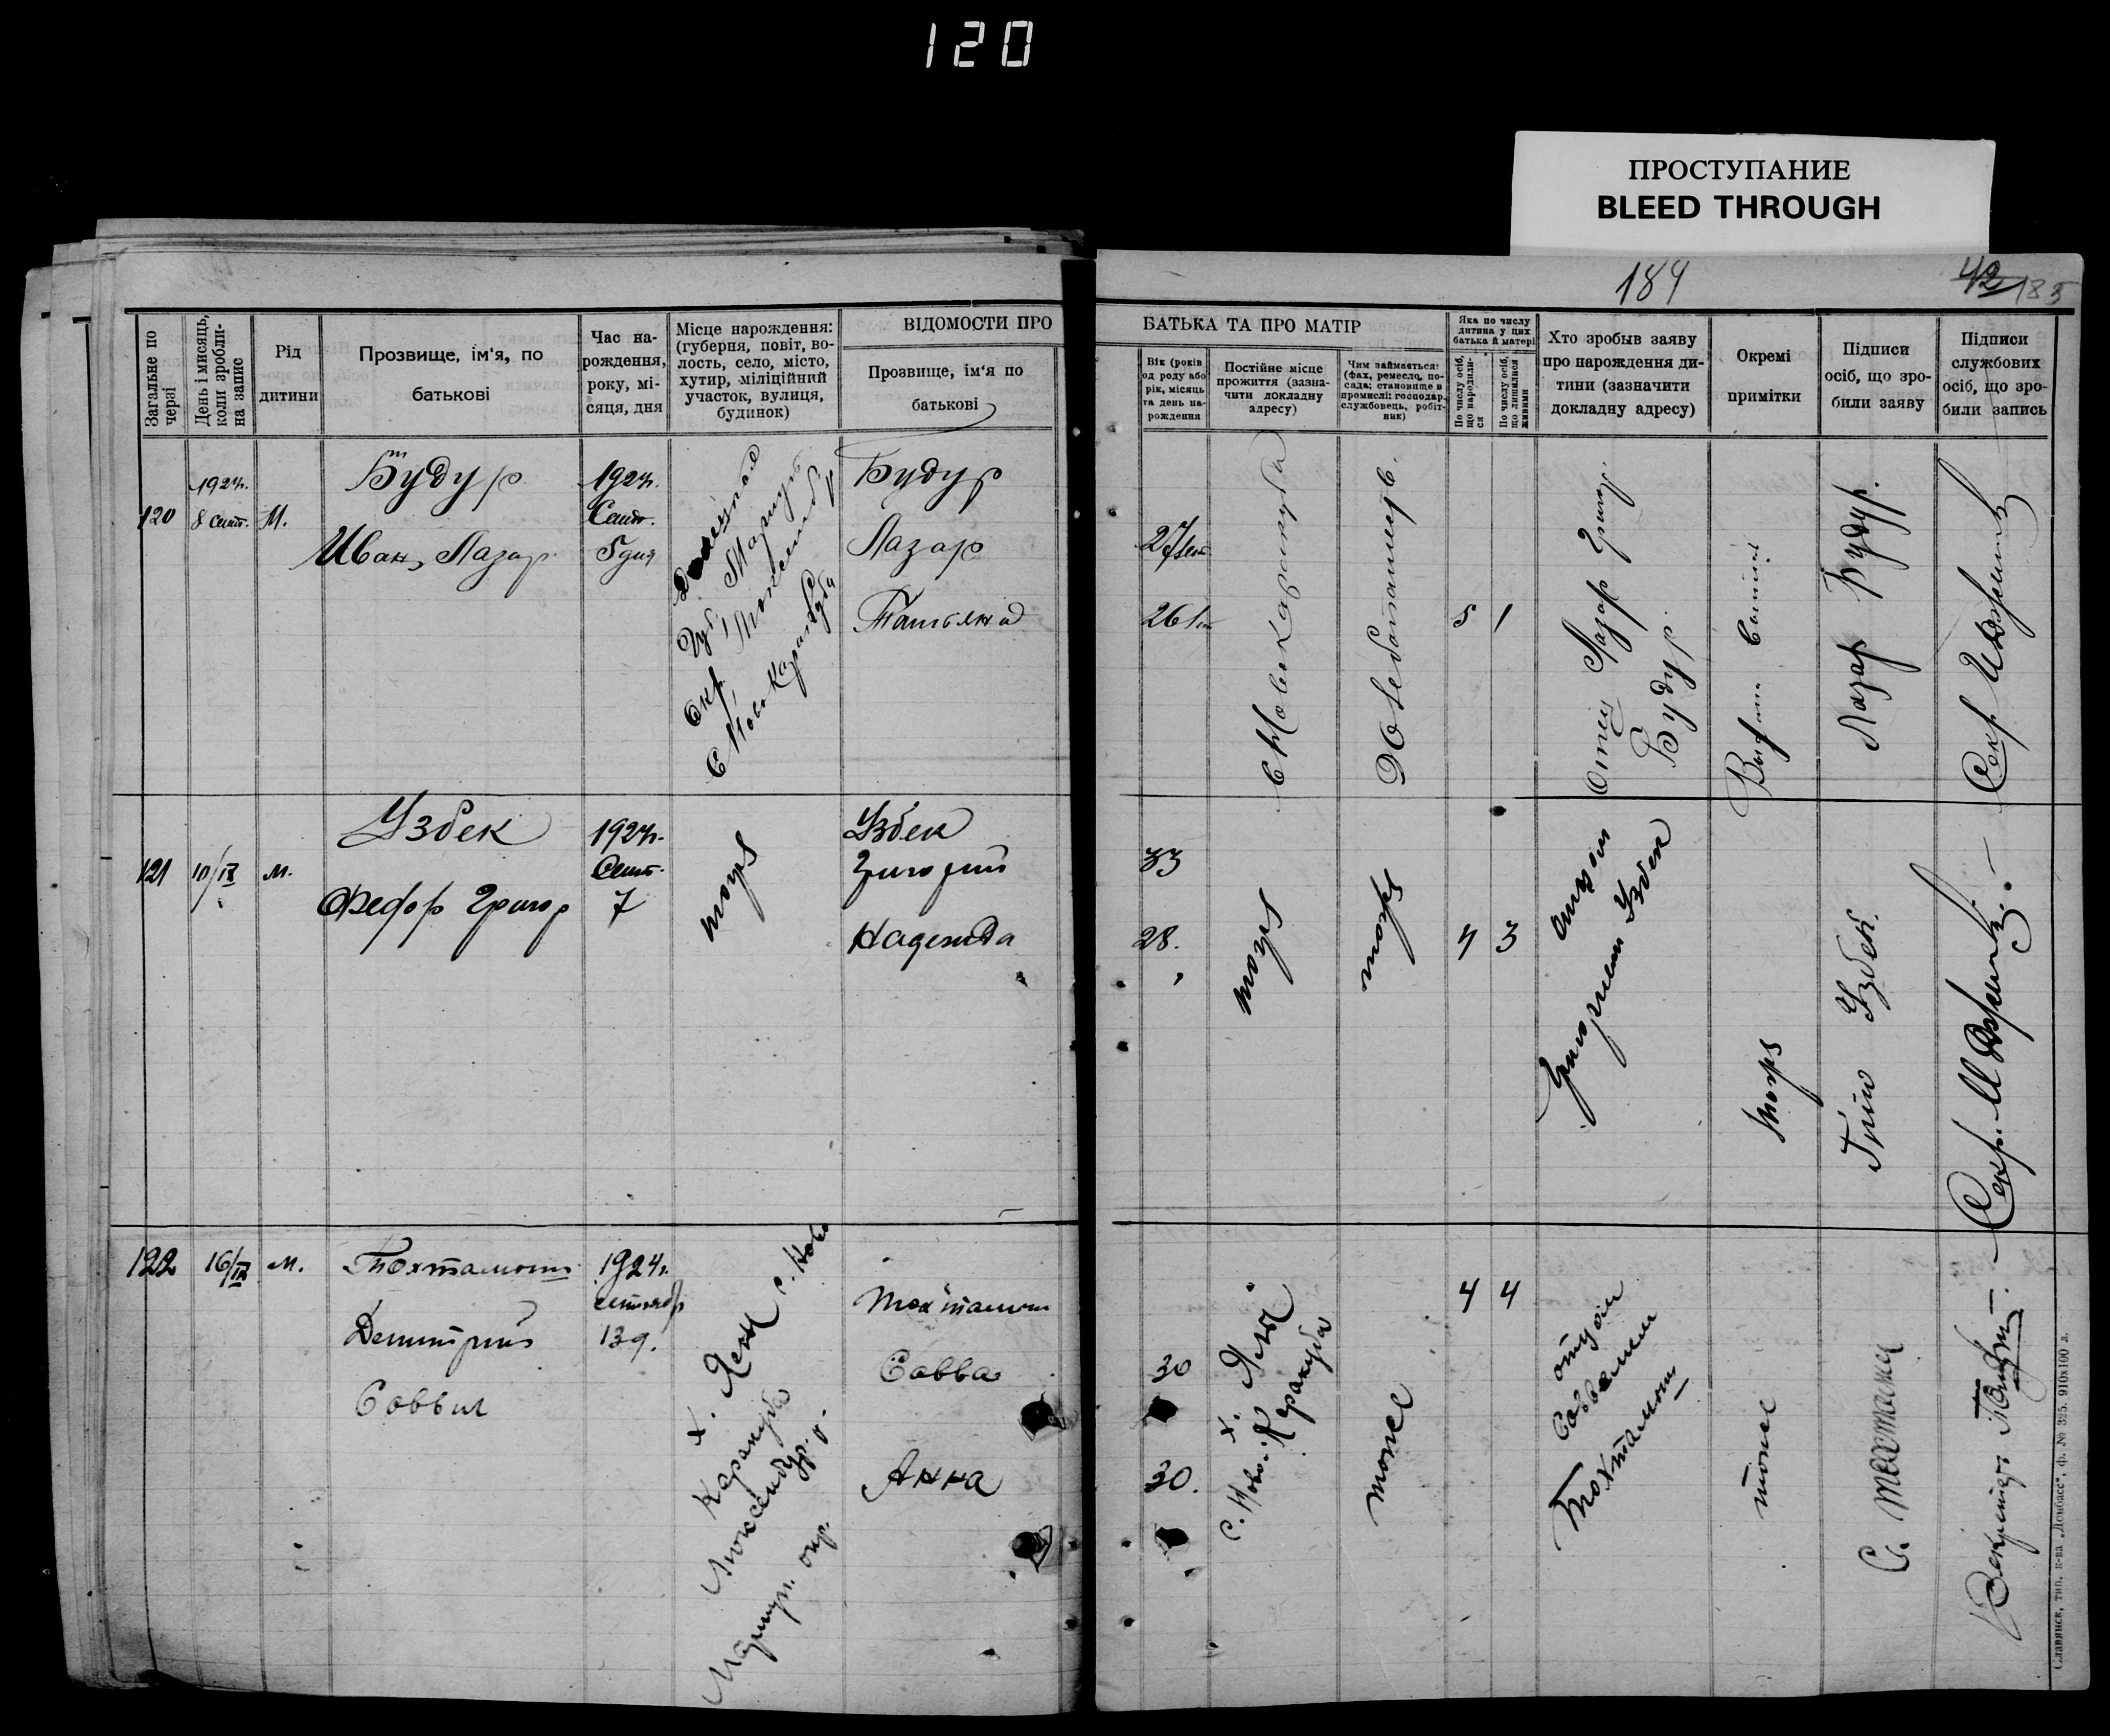 120
ПРОСТУПАНИЕ
BLEED THROUGH
184
42 185
Загальне по черзі
День і мисяць, коли зробли- на запис
Рід дитини
Прозвище, ім'я, по батькові
Час на-
рождення,
року, мі-
сяця, дня
Місце нарождення:
(губерня, повіт, во-
лость, село, місто,
хутир, міліційний
участок, вулиця,
будинок)
ВІДОМОСТИ ПРО
Прозвище, ім'я по
батькові
БАТЬКА ТА ПРО МАТІР
Вік (років
од роду або
рік, місяць
та день на-
рождення
Постійне місце
прожиття (зазна-
чити докладну
адресу)
Чим займається:
(фах, ремесло, по-
сада; становище в
промислі: господар,
службовець, робіт-
ник)
Яка по числу
дитина у цих
батька й матері
По числу осіб,
що народили-
ся
По числу осіб,
що лишилися
живими
Хто зробыв заяву
про нарождення ди-
тини (зазначити
докладну адресу)
Окремі
примітки
Підписи
осіб, що зро-
били заяву
Підписи
службових
осіб, що зро-
били запись
120
1924г.
8 Сент.
М.
Будур
Иван, Лазар
1924г.
Сент.
5 дня
Гуд.
Окр.
С Ново Каракуба
Будур
Лазар
Татьяна
27 лет
26 л
С Ново Каракуба
Хлебопашец.
5 1
Отец Лазар Григор.
Будур.
Лазар Будур.
Секр
121
10/IX
м.
Узбек
Федор Григор
1924г.
Сент.
7
тоже
Узбек
Григорий
Надежда
33
28.
тоже
тоже
4 3
отцом
Григорием Узбек
тоже
Гриш Узбек.
Секр.
122
16/IX
м.
Тохтамыш
Дмитрий
Саввич
1924г.
сентябр
13 д.
х. Ялы с. Ново
Каракуба
Мариуп. окр.
Тохтамыш
Савва
Анна
30
30.
х. Ялы
С. Ново-Каракуба
тоже
4 4
отцом
Саввой
Тохтамыш
тоже
С. Тохтамыш
Секретарь
Славянск, тип. к-ва „Донбасс“, ф. № 325. 910х100 л.